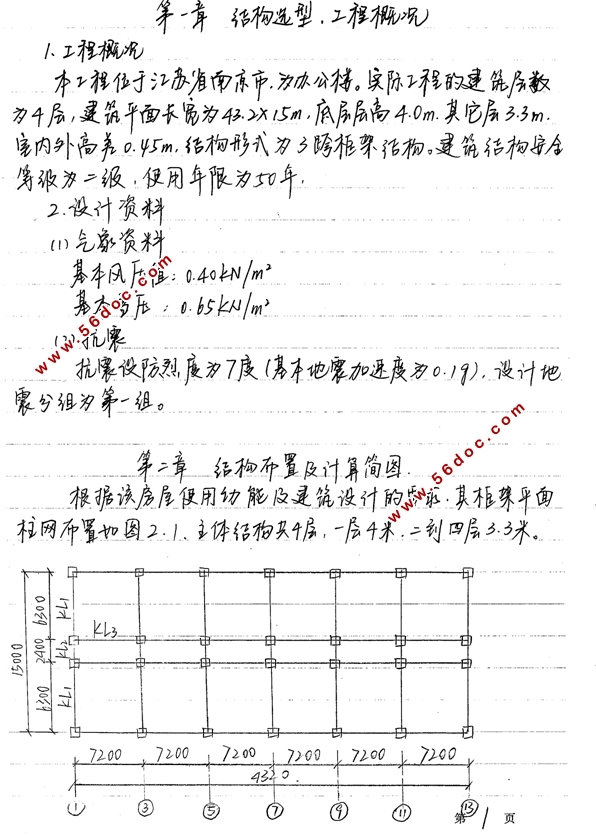 第一章 结构选型、工程概况
1.工程概况
本工程位于江苏省南京市,为办公楼。实际工程的建筑层数
为4层,建筑平面长宽为43.2×15m,底层层高4.0m.其它层3.3m.
室内外高差0.45m,结构形式为3跨框架结构。建筑结构安全
等级为二级,使用年限为50年.
2.设计资料
(1)气象资料
基本风压值:0.40KN/m²
基本雪压:0.65KN/m²
(2).抗震
抗震设防烈度为7度(基本地震加速度为0.1g),设计地
震分组为第一组。
www.56doc.com
第二章 结构布置及计算简图.
根据该房屋使用功能及建筑设计的需求.其框架平面
柱网布置如图2.1、主体结构共4层,一层4米.二到四层3.3米。
www.56doc.com
15000
6300
KL1
2400
KL2
KL3
6300
KL1
7200 7200 7200 7200 7200 7200
4320
1 3 5 7 9 11 13
第 1 页